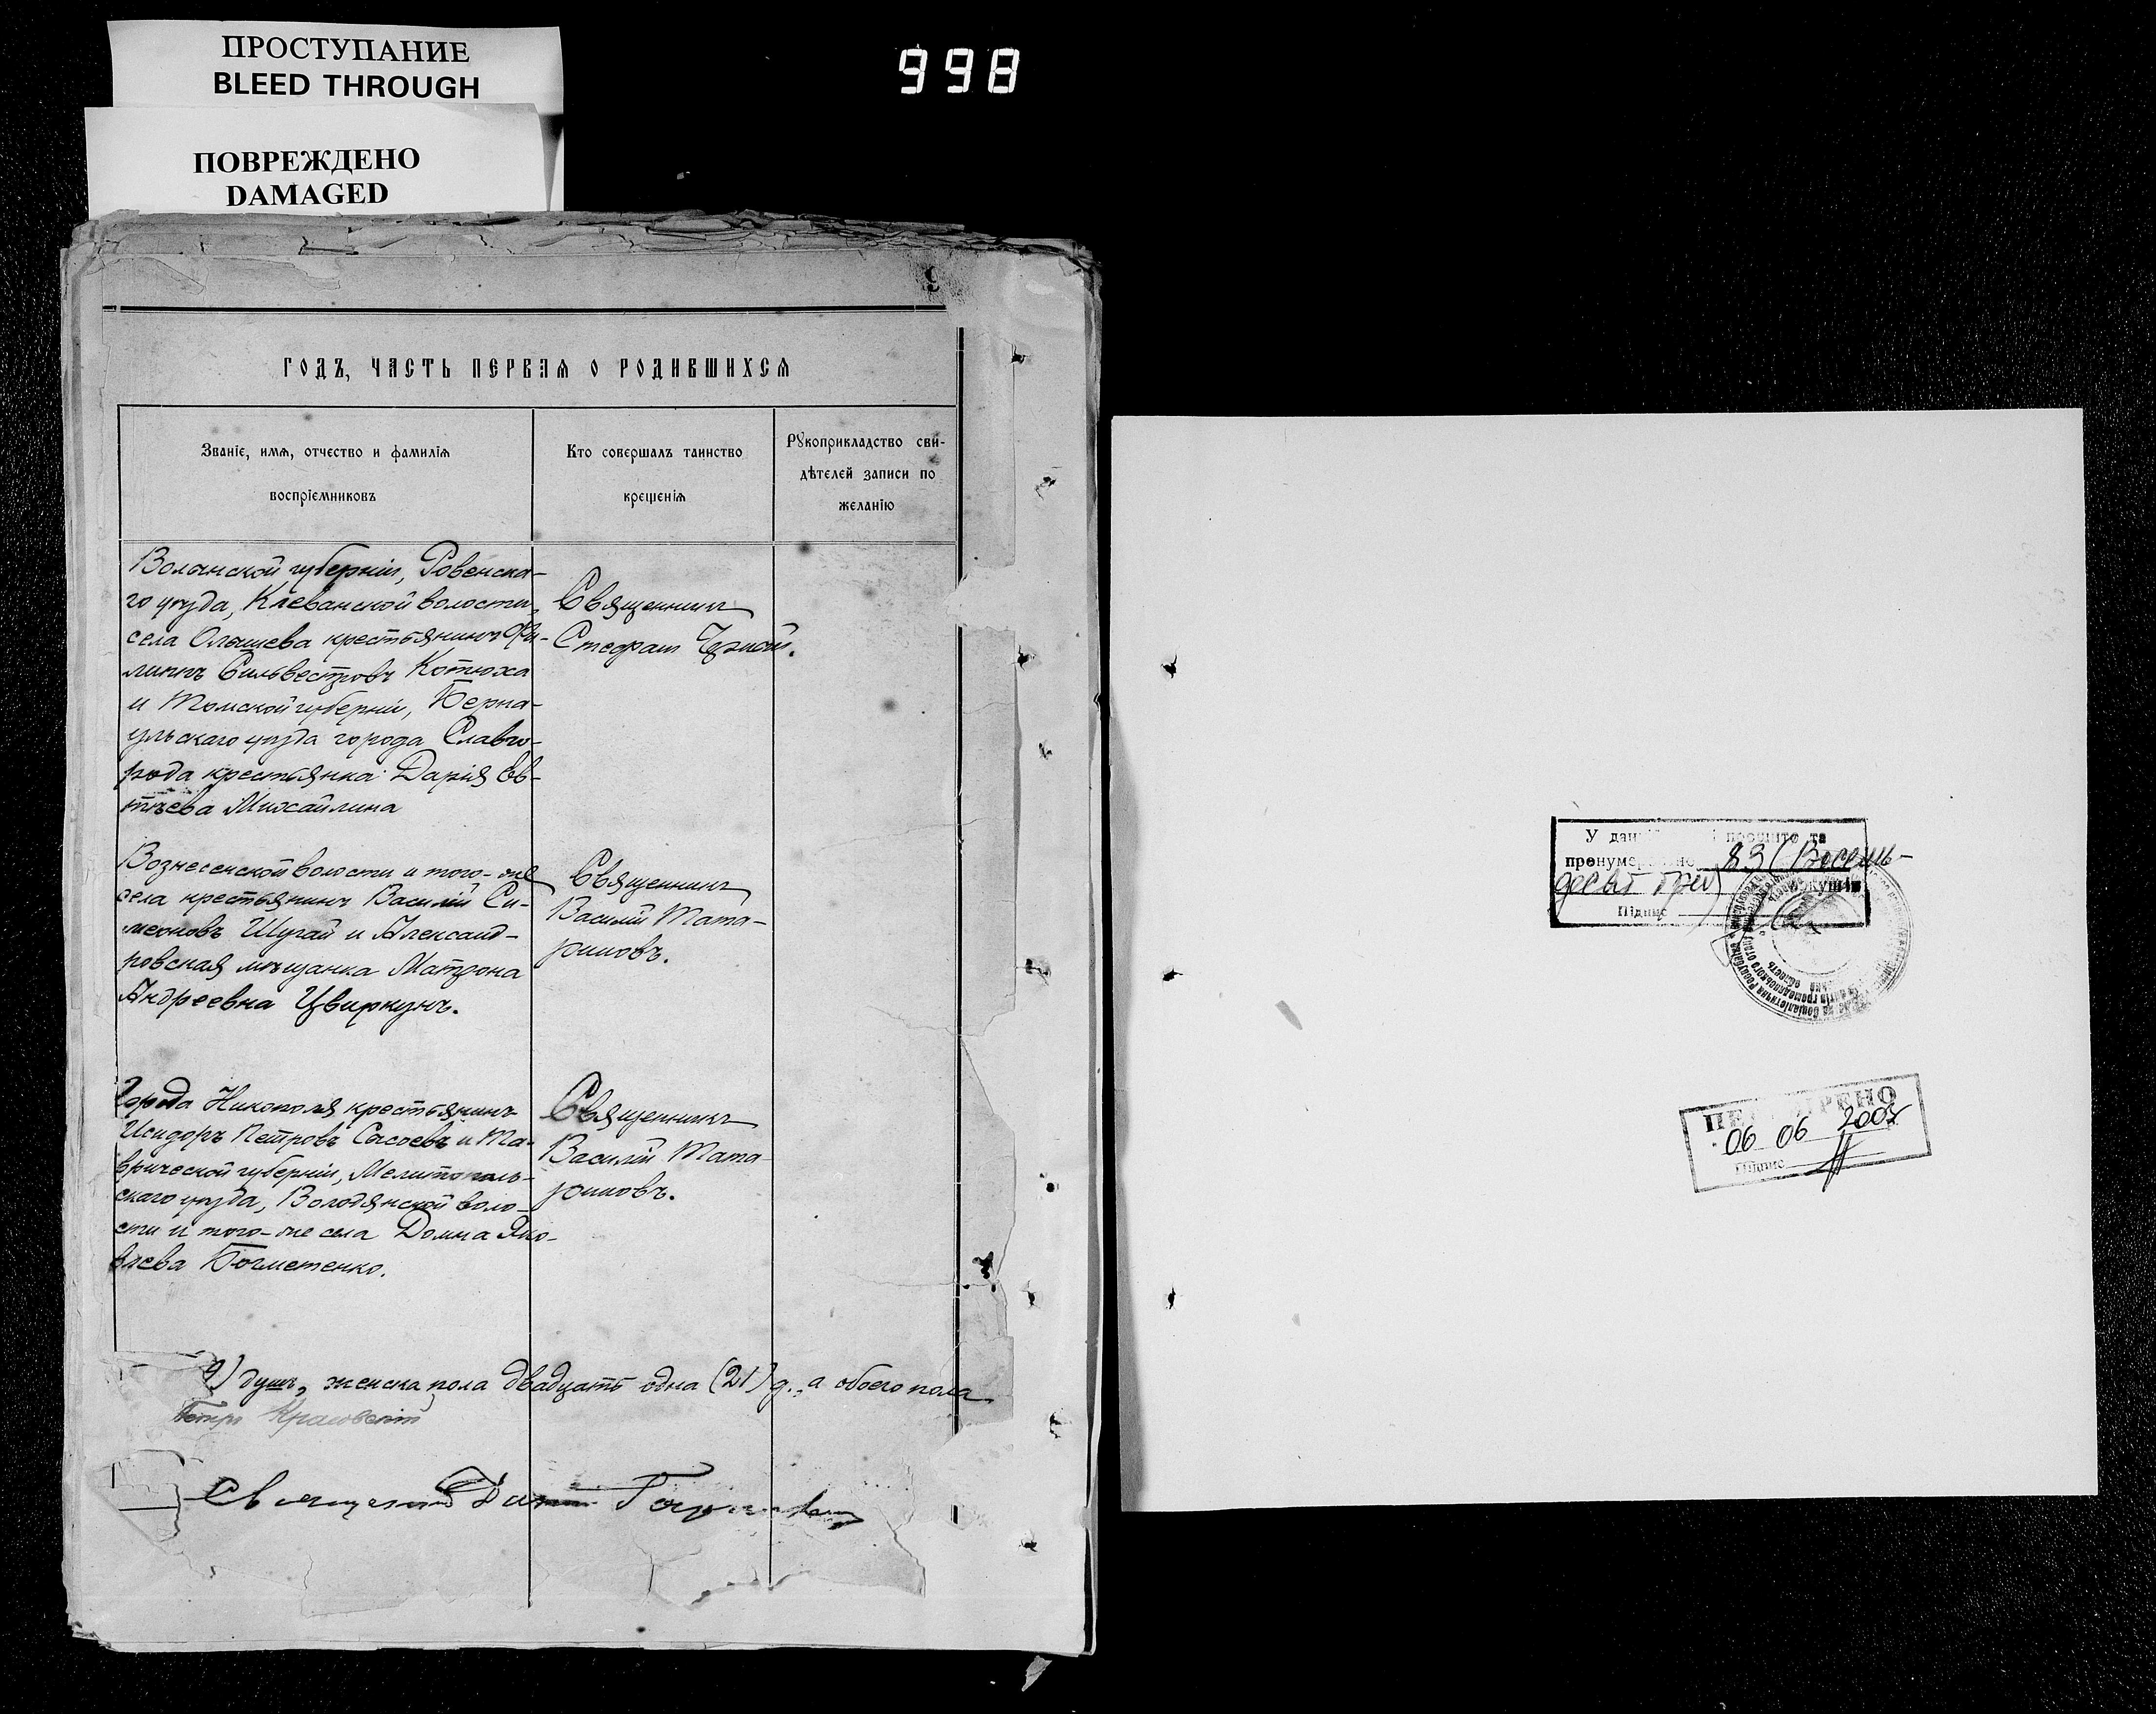 ПРОСТУПАНИЕ
BLEED THROUGH
ПОВРЕЖДЕНО
DAMAGED
998
9
ГОДЪ, ЧАСТЬ ПЕРВАЯ О РОДИВШИХСЯ
Званіе, имя, отчество и фамилія
воспріемниковъ
Кто совершалъ таинство
крещенія
Рукоприкладство сви-
дѣтелей записи по
желанію
Волынской губерніи, Ровенска-
го уѣзда, Клеванской волости,
села Олышева крестьянинъ Фи-
липпъ Сильвестровъ Котюха
и Томской губерніи, Берна-
ульскаго уѣзда города Славго-
рода крестьянка Дарія Ев-
тѣева Михайлина
Священникъ
Стефанъ
Вознесенской волости и того-же
села крестьянинъ Василій Си-
меоновъ Шугай и Александ-
ровская мѣщанка Матрона
Андреевна Цвиркунъ.
Священникъ
Василій Тата-
риновъ.
Города Никополя крестьянинъ
Исидоръ Петровъ Сысоевъ и Та-
врической губерніи, Мелитополь-
скаго уѣзда, Володянской воло-
сти и того-же села Домна Яко-
влева Бочметенко.
Священникъ
Василій Тата-
риновъ.
9) душъ, женска пола двадцать одна (21) д., а обоего пола
Петръ Красовскій
Священникъ
У
пронумеровано 83 (Восемь-
десят три)
Підпис
06 06 2007
Підпис